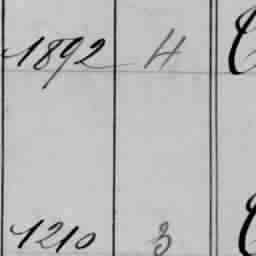 1892 H
1210 3